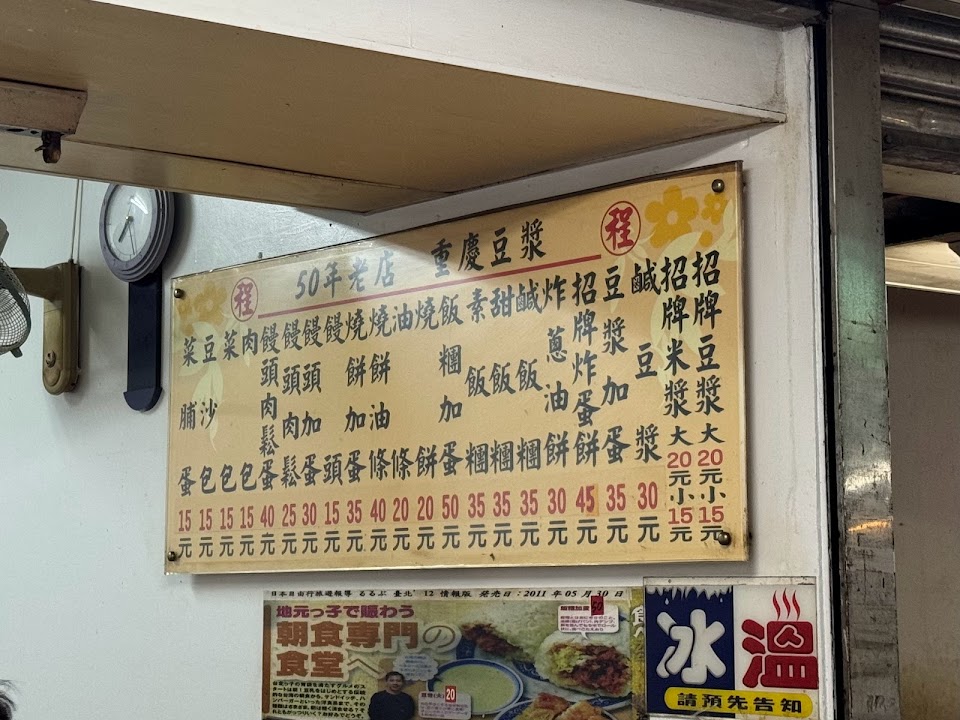 程 50年老店 重慶豆漿 程
招牌豆漿大20元小15元
招牌米漿大20元小15元
鹹豆漿30元
豆漿加蛋35元
招牌炸蛋餅45元
炸蔥油餅30元
鹹飯糰35元
甜飯糰35元
素飯糰35元
飯糰加蛋50元
燒餅20元
油條20元
燒餅油條40元
燒餅加蛋35元
饅頭15元
饅頭加蛋30元
饅頭肉鬆25元
饅頭肉鬆蛋40元
肉包15元
菜包15元
豆沙包15元
菜脯蛋15元
日本自由行旅遊報導 るるぶ 臺北 '12 情報版 発売日：2011 年 05 月 30 日
地元っ子で賑わう
朝食専門の
食堂へ
50
20
冰 溫
請預先告知